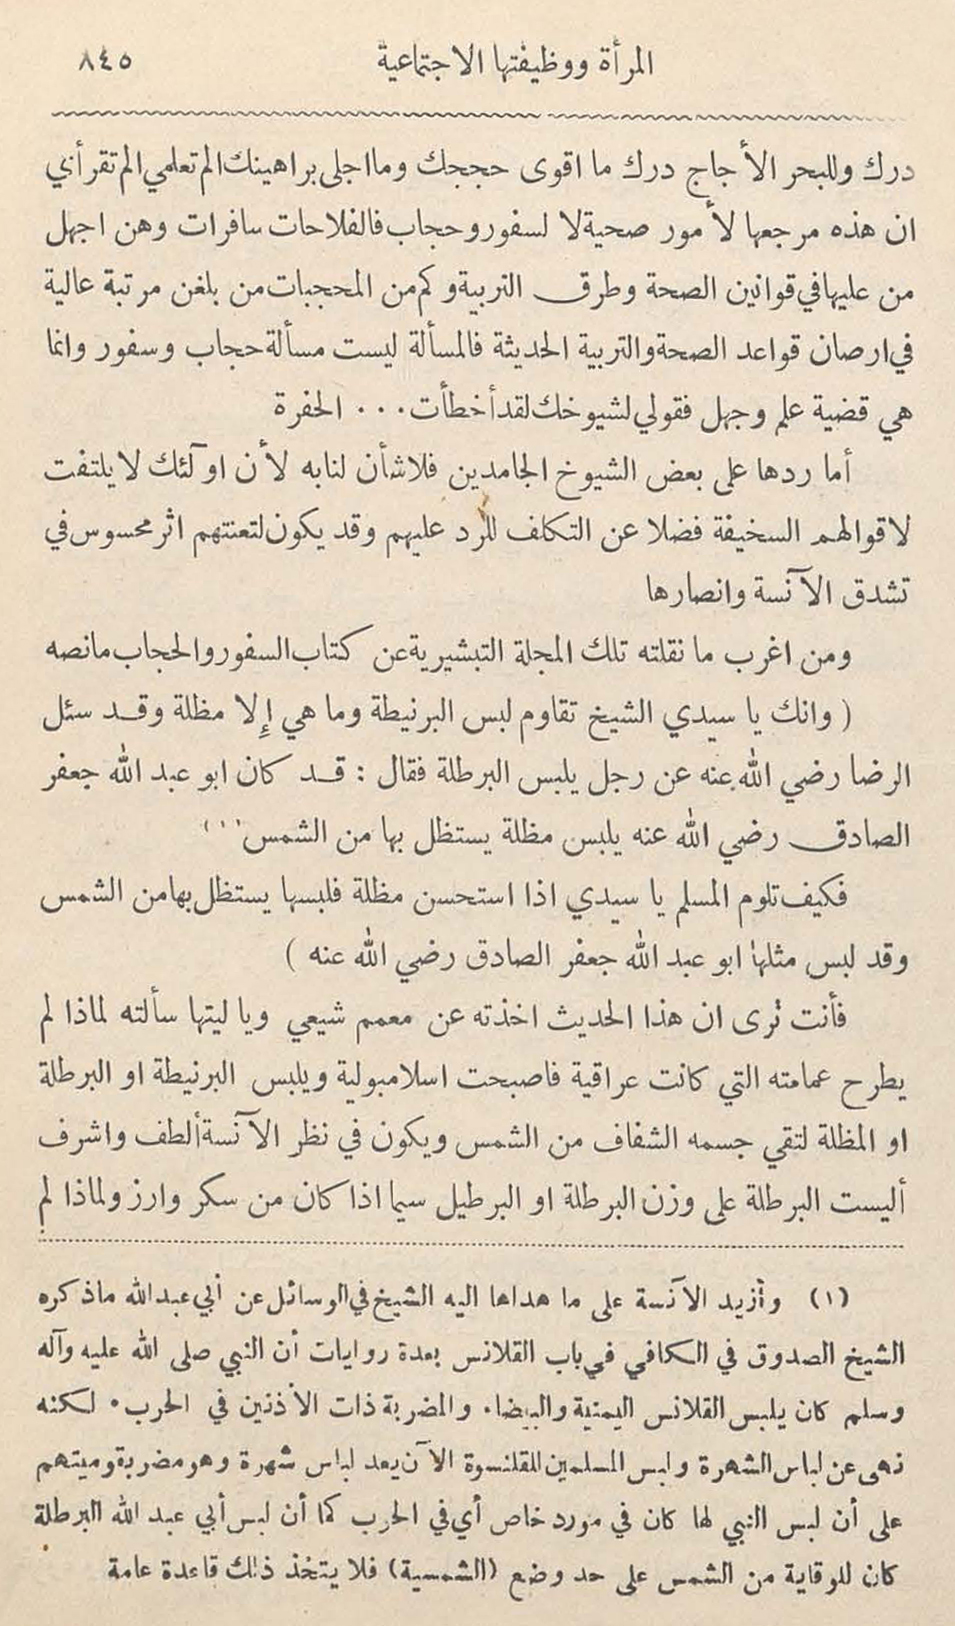 المرأة ووظيفتها الاجتماعية ٨٤٥
درك وللبحر الأجاج درك ما اقوى حججك وما اجلى براهينك الم تعلمي الم تقرأي
ان هذه مرجعها لأمور صحية لا لسفور وحجاب فالفلاحات سافرات وهن اجهل
من عليها في قوانين الصحة وطرق التربية وكم من المحجبات من بلغن مرتبة عالية
في ارصان قواعد الصحة والتربية الحديثة فالمسألة ليست مسألة حجاب وسفور وانما
هي قضية علم وجهل فقولي لشيوخك لقد أخطأت ... الحفرة
أما ردها على بعض الشيوخ الجامدين فلا شأن لنا به لأن اولئك لا يلتفت
لاقوالهم السخيفة فضلا عن التكلف للرد عليهم وقد يكون لتعنتهم اثر محسوس في
تشدق الآنسة وانصارها
ومن اغرب ما نقلته تلك المجلة التبشيرية عن كتاب السفور والحجاب ما نصه
( وانك يا سيدي الشيخ تقاوم لبس البرنيطة وما هي إلا مظلة وقد سئل
الرضا رضي الله عنه عن رجل يلبس البرطلة فقال : قد كان ابو عبد الله جعفر
الصادق رضي الله عنه يلبس مظلة يستظل بها من الشمس (١)
فكيف تلوم المسلم يا سيدي اذا استحسن مظلة فلبسها يستظل بها من الشمس
وقد لبس مثلها ابو عبد الله جعفر الصادق رضي الله عنه )
فأنت ترى ان هذا الحديث اخذته عن معمم شيعي ويا ليتها سألته لماذا لم
يطرح عمامته التي كانت عراقية فاصبحت اسلامبولية ويلبس البرنيطة او البرطلة
او المظلة لتقي جسمه الشفاف من الشمس ويكون في نظر الآنسة ألطف واشرف
أليست البرطلة على وزن البرطلة او البرطيل سيما اذا كان من سكر وارز ولماذا لم
(١) وأزيد الآنسة على ما هداها اليه الشيخ في الوسائل عن أبي عبد الله ما ذكره
الشيخ الصدوق في الكافي في باب القلانس بعدة روايات أن النبي صلى الله عليه وآله
وسلم كان يلبس القلانس اليمنية والبيضا. والمضربة ذات الأذنين في الحرب. لكنه
نهى عن لباس الشهرة ولبس المسلمين للقلنسوة الآن يعد لباس شهرة وهو مضر بقوميتهم
على أن لبس النبي لها كان في مورد خاص أي في الحرب كما أن لبس أبي عبد الله البرطلة
كان للوقاية من الشمس على حد وضع (الشمسية) فلا يتخذ ذلك قاعدة عامة